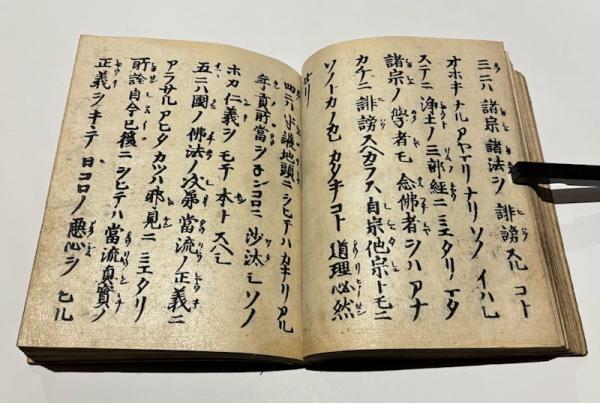 三ニハ諸宗諸法ヲ誹謗スルコト
オホキナルアヤマリナリソノイハレ
ステニ浄土ノ三部経ニミエタリマタ
諸宗ノ學者モ念佛者ヲハアナ
カチニ誹謗スヘカラス自宗他宗トモニ
ソノトカノカレカタキコト道理必然
セリ
四ニハ守護地頭ニヲヒテハカキリアル
年貢所當ヲネンコロニ沙汰シソノ
ホカ仁義ヲモテ本トスヘシ
五ニハ國ノ佛法ノ次第當流ノ正義ニ
アラサルアヒタカツハ邪見ニミエタリ
所詮自今已後ニヲヒテハ當流真實ノ
正義ヲキキテ日コロノ悪心ヲヒル